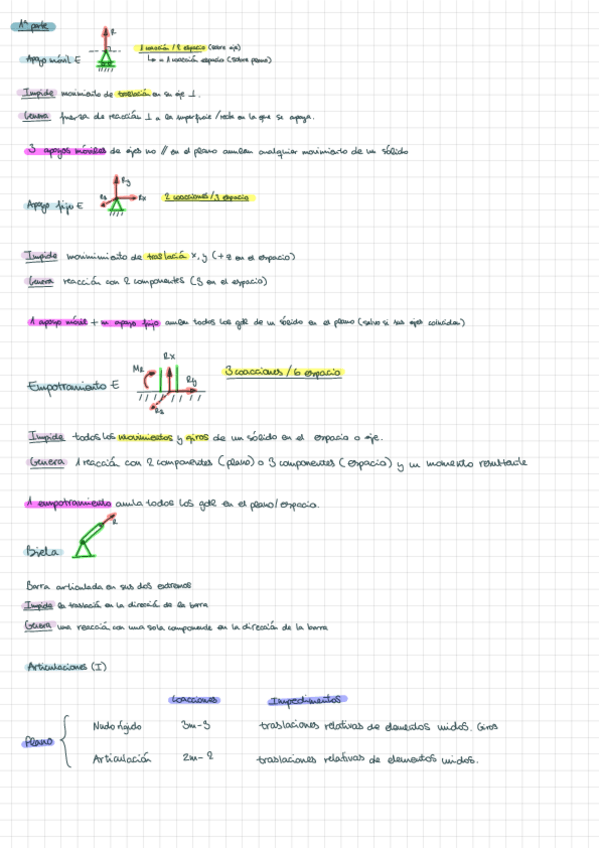 1ª parte
R
Apoyo móvil E
1 coacción / 2 espacio (sobre eje)
↳ = 1 coacción espacio (sobre plano)
Impide movimiento de traslación en su eje ⊥.
Genera fuerza de reacción ⊥ a la superficie / recta en la que se apoya.
3 apoyos móviles de ejes no // en el plano anulan cualquier movimiento de un sólido
Ry
Rz
Rx
Apoyo fijo E
2 coacciones / 3 espacio
Impide movimiento de traslació x, y (+ z en el espacio)
Genera reacción con 2 componentes (3 en el espacio)
1 apoyo móvil + un apoyo fijo anulan todos los gdl de un sólido en el plano (salvo si sus ejes coinciden)
Rx
MR
Ry
Rz
Empotramiento E
3 coacciones / 6 espacio
Impide todos los movimientos y giros de un sólido en el espacio o eje.
Genera 1 reacción con 2 componentes (plano) o 3 componentes (espacio) y un momento resultante
1 empotramiento anula todos los gdl en el plano/espacio.
R
Biela
Barra articulada en sus dos extremos
Impide la traslació en la direcció de la barra
Genera una reacció con una sola componente en la direcció de la barra
Articulaciones (I)
Coacciones
Impedimentos
Plano
Nudo rígido
3m-3
traslaciones relativas de elementos unidos. Giros
Articulación
2m-2
traslaciones relativas de elementos unidos.